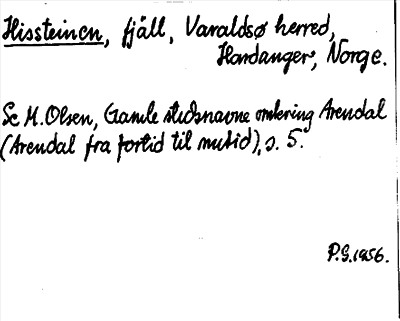 Hissteinen, fjäll, Varaldsø herred,
Hardanger, Norge.
Se M. Olsen, Gamle stedsnavne omkring Arendal
(Arendal fra fortid til nutid), s. 5.
P.G. 1956.